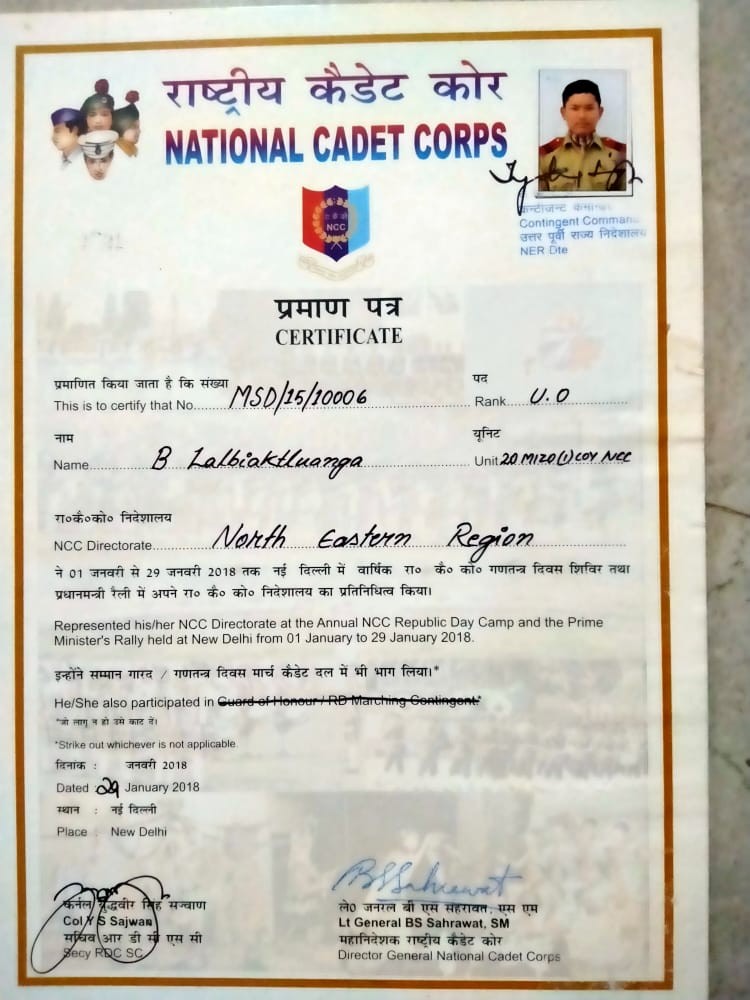 राष्ट्रीय कैडेट कोर
NATIONAL CADET CORPS
NCC
Contingent
उत्तर पूर्वी राज्य निदेशालय
NER Dte
प्रमाण पत्र
CERTIFICATE
प्रमाणित किया जाता है कि संख्या
पद
This is to certify that No. MSD/15/10006
Rank U.O
नाम
यूनिट
Name B Lalbiaktluanga
Unit 20 MIZO (I) COY NCC
रा०कै०को० निदेशालय
NCC Directorate North Eastern Region
ने 01 जनवरी से 29 जनवरी 2018 तक नई दिल्ली में वार्षिक रा० कै० को० गणतन्त्र दिवस शिविर तथा
प्रधानमन्त्री रैली में अपने रा० कै० को० निदेशालय का प्रतिनिधित्व किया।
Represented his/her NCC Directorate at the Annual NCC Republic Day Camp and the Prime
Minister's Rally held at New Delhi from 01 January to 29 January 2018.
इन्होंने सम्मान गारद / गणतन्त्र दिवस मार्च कैडेट दल में भी भाग लिया।*
He/She also participated in Guard of Honour / RD Marching Contingent.*
*जो लागू न हो उसे काट दें।
*Strike out whichever is not applicable.
दिनांक : जनवरी 2018
Dated : 29 January 2018
स्थान : नई दिल्ली
Place : New Delhi
BSSahrawat
कर्नल युद्धवीर सिंह सज्वाण
Col Y S Sajwan
सचिव आर डी सी एस सी
Secy RDC SC
ले० जनरल बी एस सहरावत, एस एम
Lt General BS Sahrawat, SM
महानिदेशक राष्ट्रीय कैडेट कोर
Director General National Cadet Corps